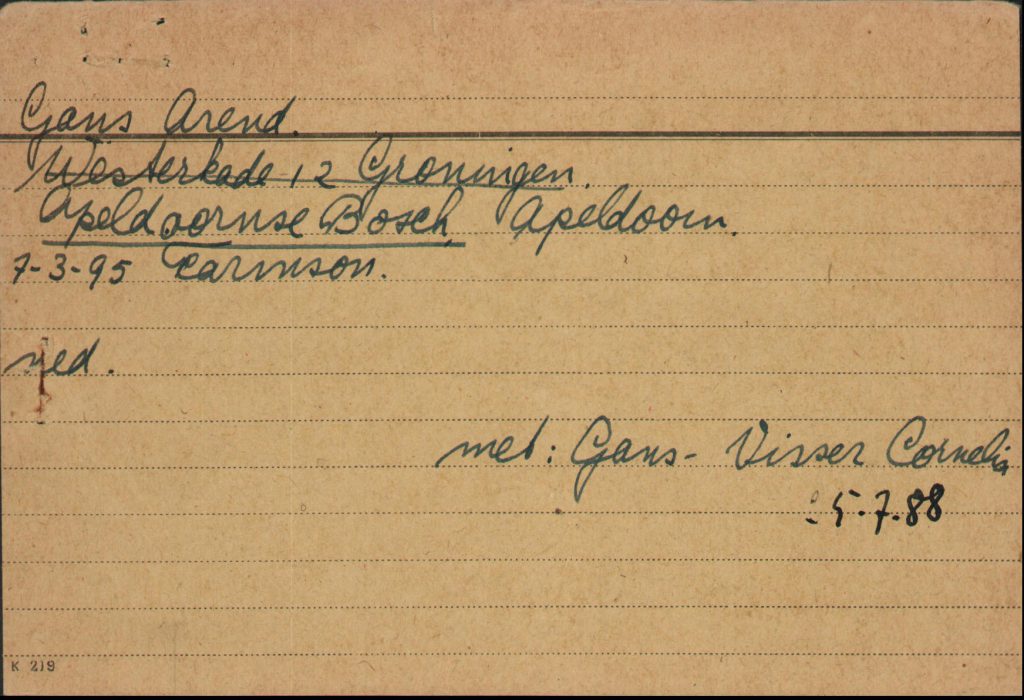 Gans Arend.
Westerkade 12 Groningen.
Apeldoornse Bosch, Apeldoorn.
7-3-95
ned.
met: Gans- Visser Cornelia
5.7.88
K 219